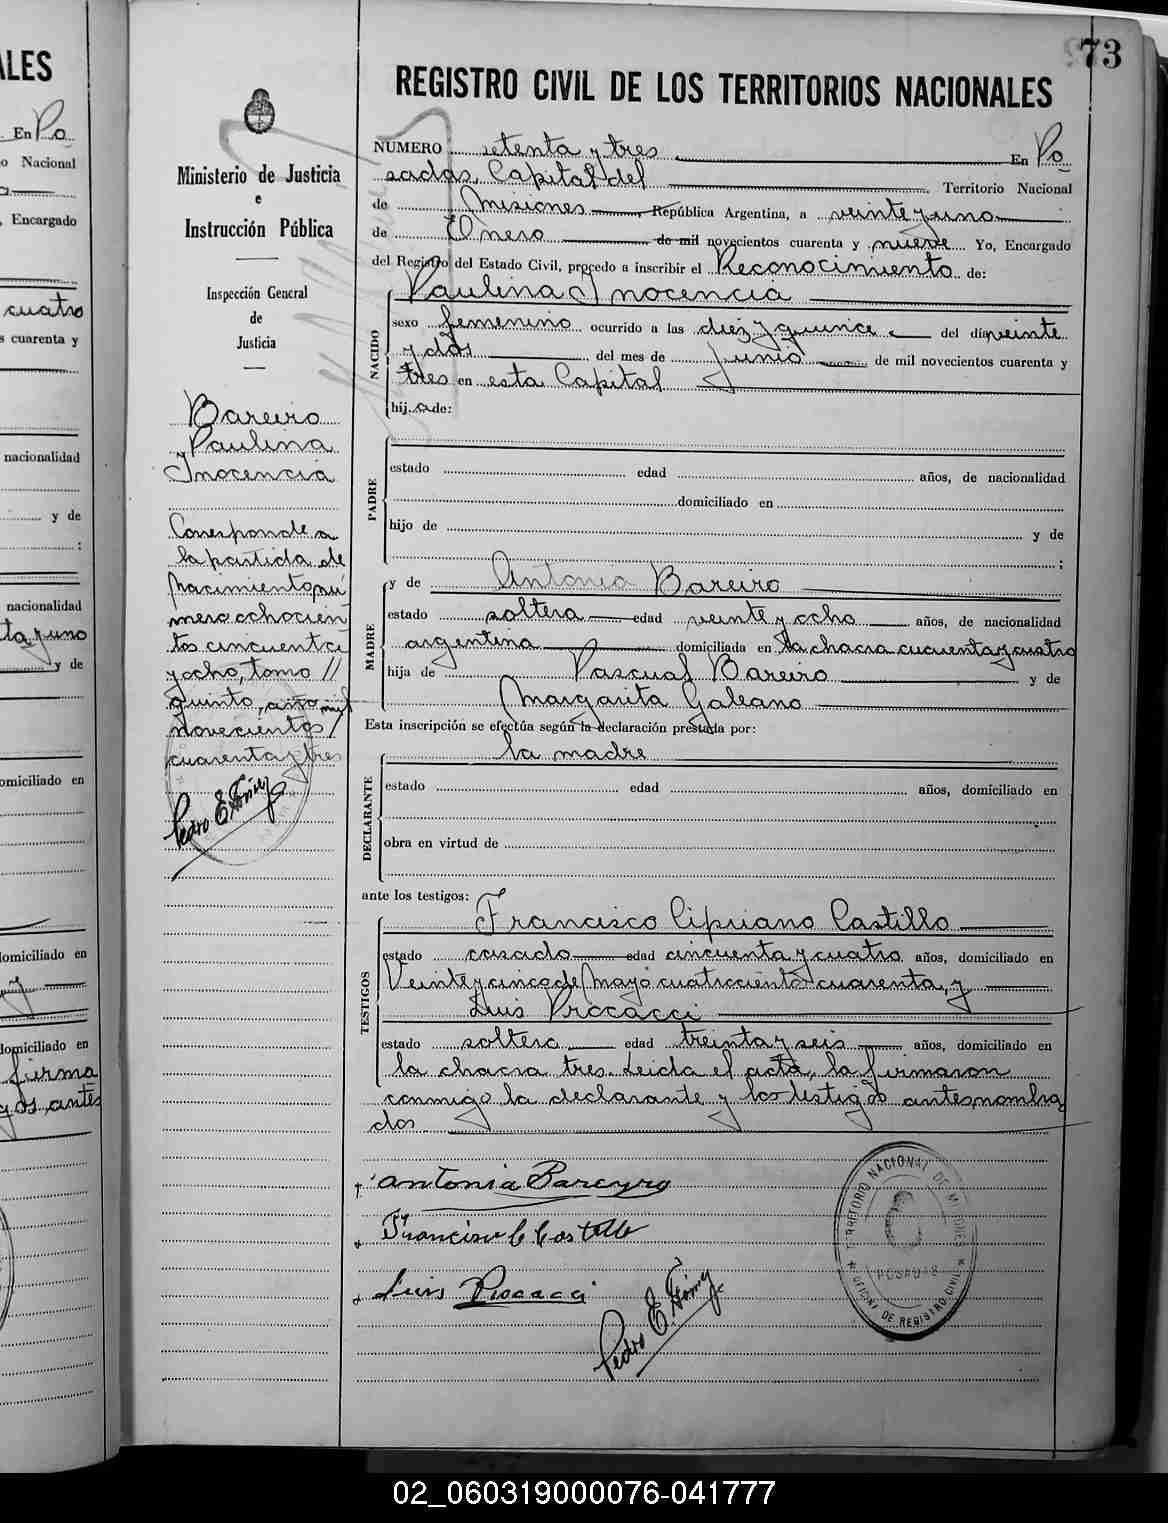 ALES
En Po
o Nacional
, Encargado
cuatro
s cuarenta y
nacionalidad
y de
:
nacionalidad
ta y uno
y de
omiciliado en
domiciliado en
domiciliado en
firma
antes
73
REGISTRO CIVIL DE LOS TERRITORIOS NACIONALES
Ministerio de Justicia
e
Instrucción Pública
Inspección General
de
Justicia
Bareiro
Paulina
Ynocencia
Corresponde a
la partida de
nacimiento nú
mero ochocien
tos cincuenta
y ocho, tomo //
quinto, año mil
novecientos /
cuarenta y tres
Pedro E. Gómez
NUMERO setenta y tres En Po
sadas Capital del Territorio Nacional
de Misiones, República Argentina, a veinte y uno
de Enero de mil novecientos cuarenta y nueve Yo, Encargado
del Registro del Estado Civil, procedo a inscribir el Reconocimiento de:
NACIDO
Paulina Ynocencia
sexo femenino ocurrido a las diez y quince del día veinte
y dos del mes de Junio de mil novecientos cuarenta y
tres en esta Capital
hij a de:
PADRE
estado edad años, de nacionalidad
domiciliado en
hijo de y de
;
MADRE
y de Antonia Bareiro
estado soltera edad veinte y ocho años, de nacionalidad
argentina domiciliada en la chacra cuarenta y cuatro
hija de Pascual Bareiro y de
Margarita Galeano
Esta inscripción se efectúa según la declaración prestada por:
DECLARANTE
la madre
estado edad años, domiciliado en
obra en virtud de
ante los testigos:
TESTIGOS
Francisco Cipriano Castillo
estado casado edad cincuenta y cuatro años, domiciliado en
Veinte y cinco de Mayo cuatrocientos cuarenta, y
Luis Procacci
estado soltero edad treinta y seis años, domiciliado en
la chacra tres. Leida el acta, la firmaron
conmigo la declarante y los testigos antes nombra
dos
Antonia Bareyro
Francisco C Castillo
Luis Procacci
Pedro E. Gómez
TERRITORIO NACIONAL DE MISIONES
POSADAS
OFICINA DE REGISTRO CIVIL
02_060319000076-041777